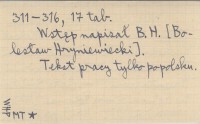 311–316, 17 tab.
Wstęp napisał B. H. [Bo-
lesław Hryniewiecki].
Tekst pracy tylko po polsku.
WHP
MT *